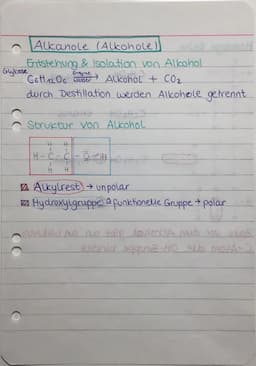 Alkanole (Alkohole)
Entstehung & Isolation von Alkohol
Glucose C6H12O6 Enzyme → Alkohol + CO2
durch Destillation werden Alkohole getrennt
Struktur von Alkohol
H H
H-C-C-O-H
H H
Alkylrest → unpolar
Hydroxylgruppe ≙ funktionelle Gruppe → polar